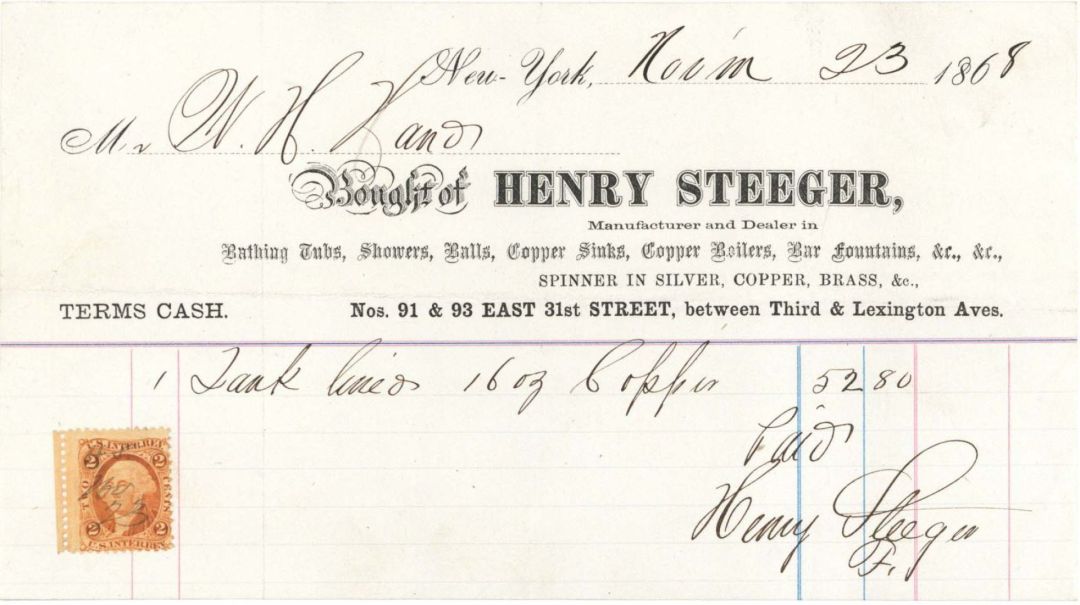 New-York, Nov'm 23 1868
Mr W. H. Hand
Bought of HENRY STEEGER,
Manufacturer and Dealer in
Bathing Tubs, Showers, Balls, Copper Sinks, Copper Boilers, Bar Fountains, &c., &c.,
SPINNER IN SILVER, COPPER, BRASS, &c.,
TERMS CASH. Nos. 91 & 93 EAST 31st STREET, between Third & Lexington Aves.
1 Tank lined 16 oz Copper 52 80
Paid
Henry Steeger
F.
U.S. INTER. REV.
2 2
TWO CENTS
2 2
U.S. INTER. REV.